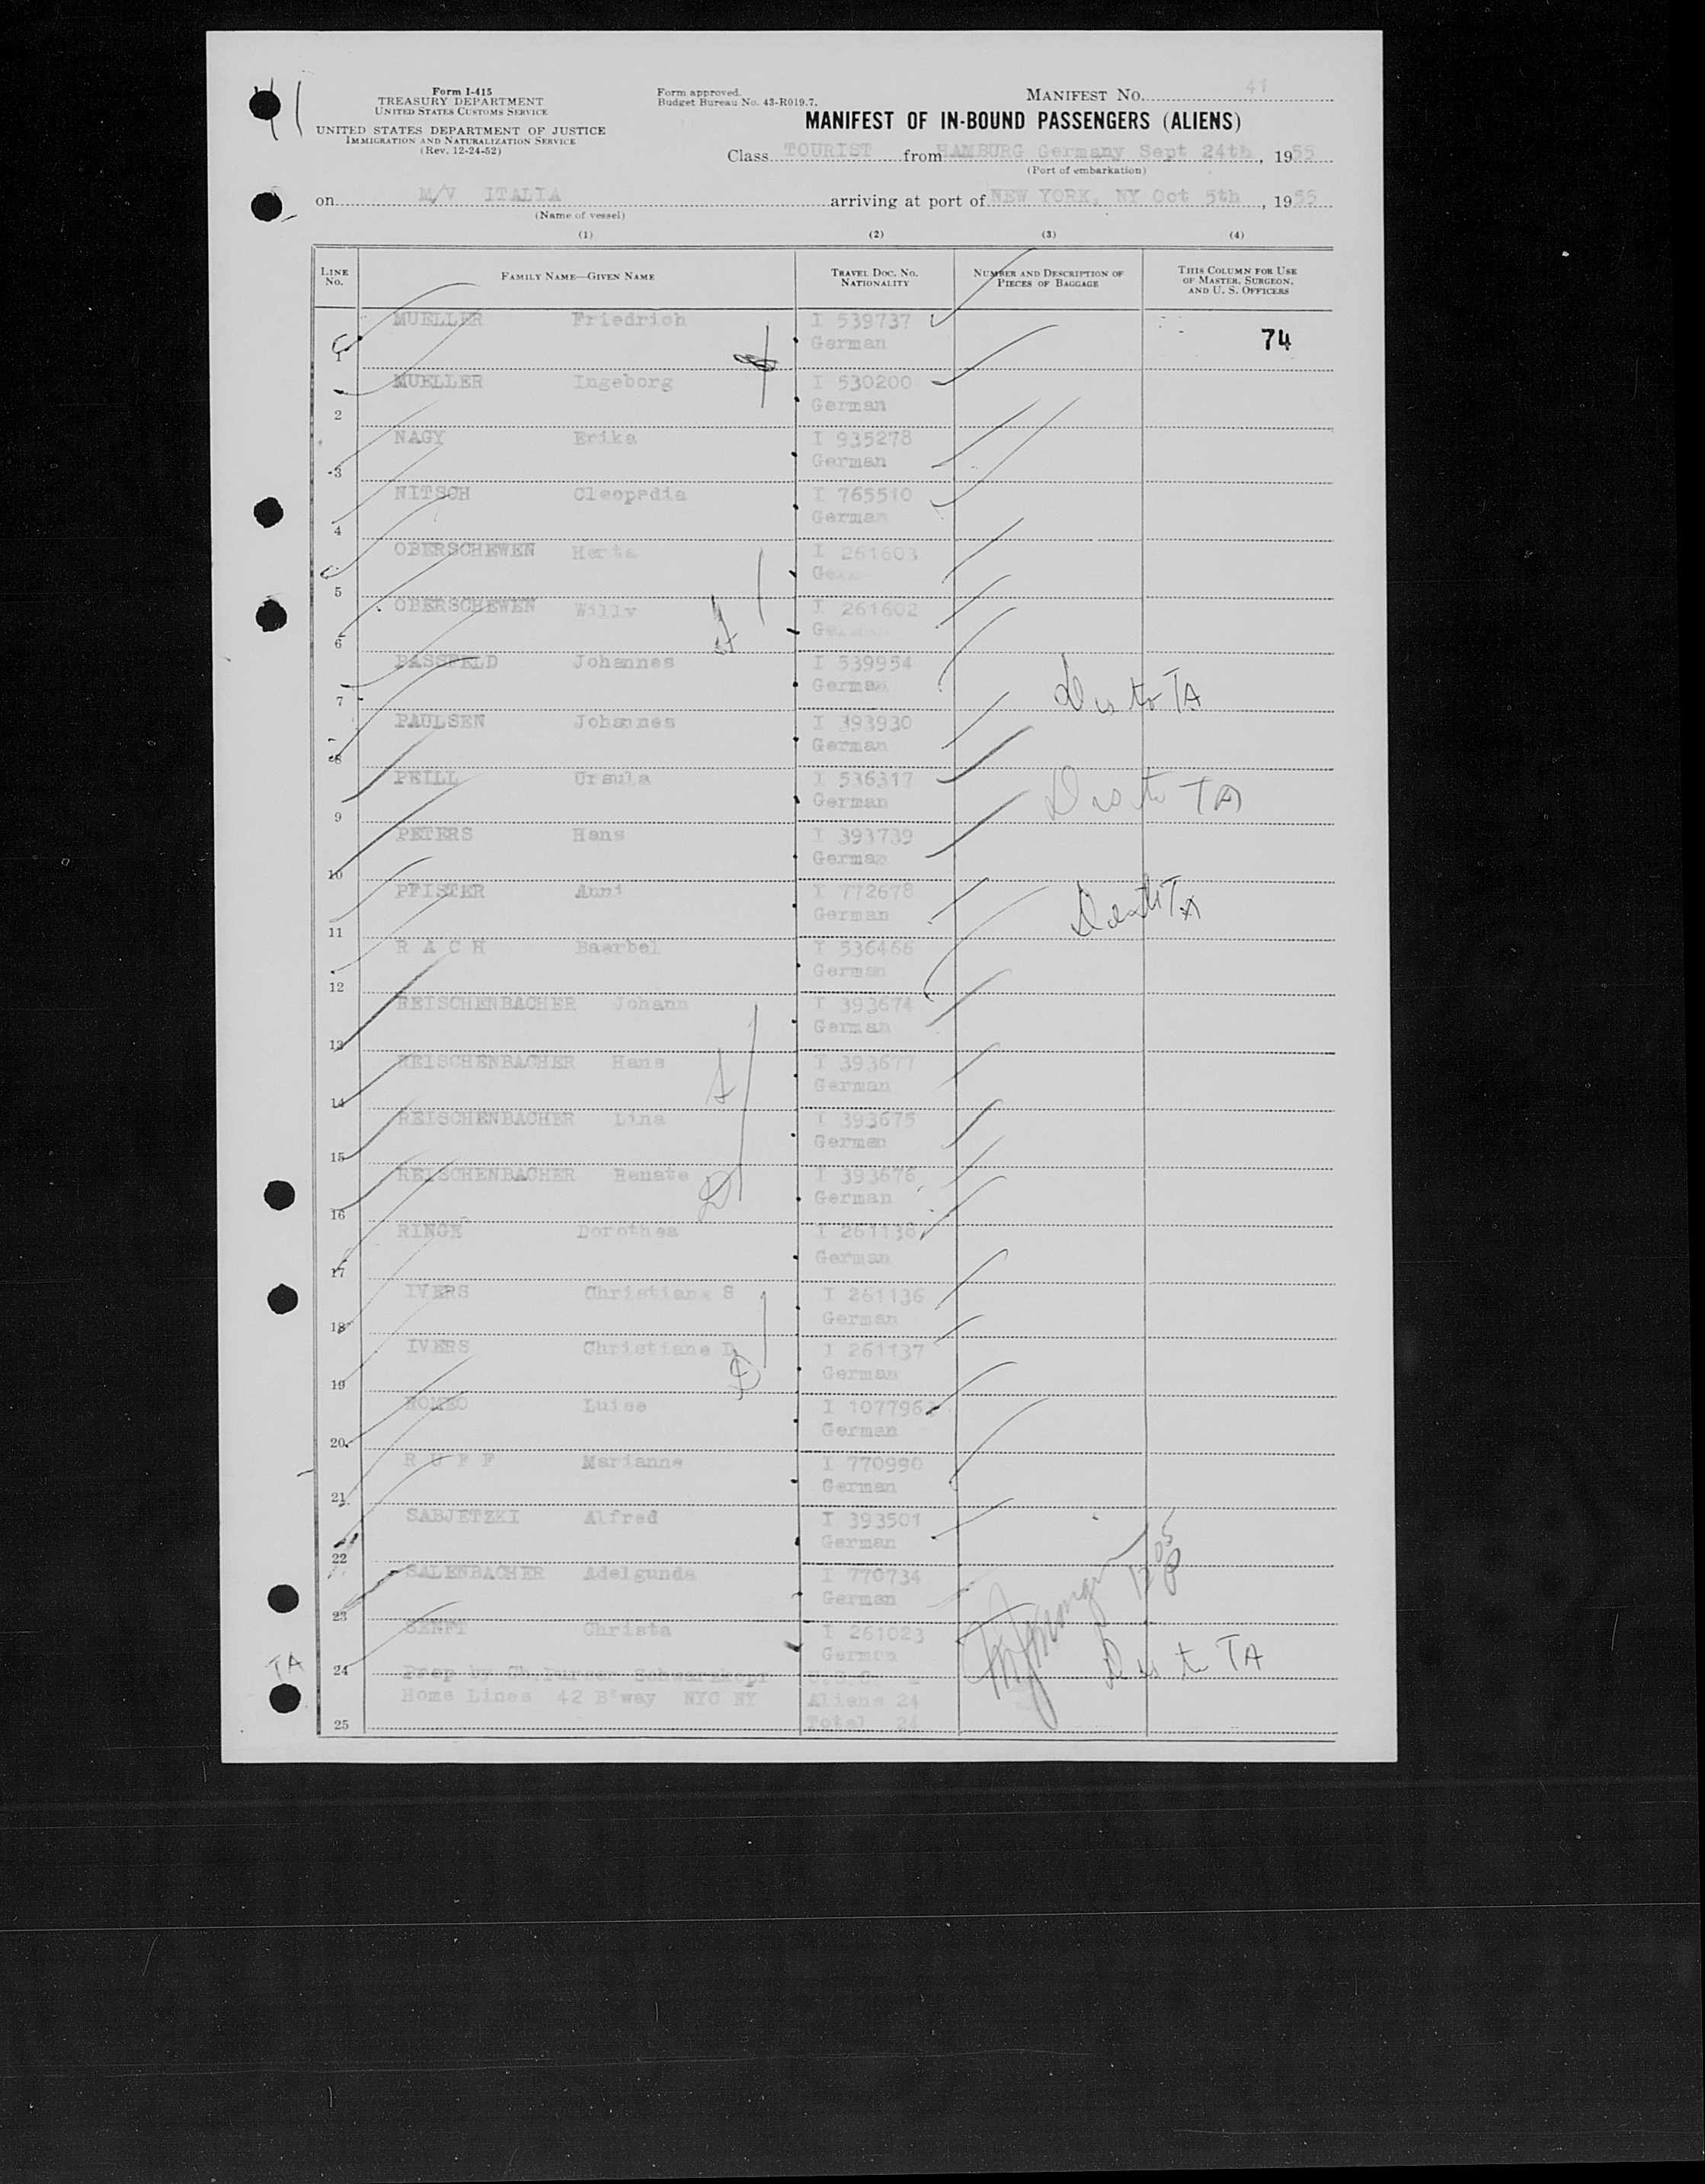 41
Form I-415
TREASURY DEPARTMENT
UNITED STATES CUSTOMS SERVICE
UNITED STATES DEPARTMENT OF JUSTICE
IMMIGRATION AND NATURALIZATION SERVICE
(Rev. 12-24-52)
Form approved.
Budget Bureau No. 43-R019.7.
MANIFEST NO. 41
MANIFEST OF IN-BOUND PASSENGERS (ALIENS)
Class TOURIST from HAMBURG Germany Sept 24th, 1955
(Port of embarkation)
on M/V ITALIA arriving at port of NEW YORK, NY Oct 5th, 1955
(Name of vessel)
(1) (2) (3) (4)
LINE No. FAMILY NAME—GIVEN NAME TRAVEL DOC. NO. NATIONALITY NUMBER AND DESCRIPTION OF PIECES OF BAGGAGE THIS COLUMN FOR USE OF MASTER, SURGEON, AND U. S. OFFICERS
1 MUELLER Friedrich I 539737 German 74
2 MUELLER Ingeborg I 530200 German
3 NAGY Erika I 935278 German
4 NITSCH Cleopedia I 765510 German
5 OBERSCHEWEN Herta I 261603
6 OBERSCHEWEN Willy I 261602
7 PASSFELD Johannes I 539954 German Dis to TA
8 PAULSEN Johannes I 393930 German
9 PEILL Ursula I 536317 German Dis to TA
10 PETERS Hans I 393739 German
11 PFISTER Anni I 772678 German TA
12 R A C H Baerbel I 536466 German
13 REISCHENBACHER Johann I 393674 German
14 REISCHENBACHER Hans I 393677 German
15 REISCHENBACHER Lina I 393675 German
16 REISCHENBACHER Renate I 393676 German
17 RINGE Dorothea I 261138 German
18 IVERS Christiane S I 261136 German
19 IVERS Christiane D I 261137 German
20 ROMEO Luise German
21 R U F F Marianne I 770990 German
22 SABJETZKI Alfred I 393501 German
23 SALENBACHER Adelgunda I 770734 German
24 SENFT Christa I 261023 German Dis to TA
TA
Prep by
Home Lines 42 B'way NYC NY Aliens 24
25 Total 24